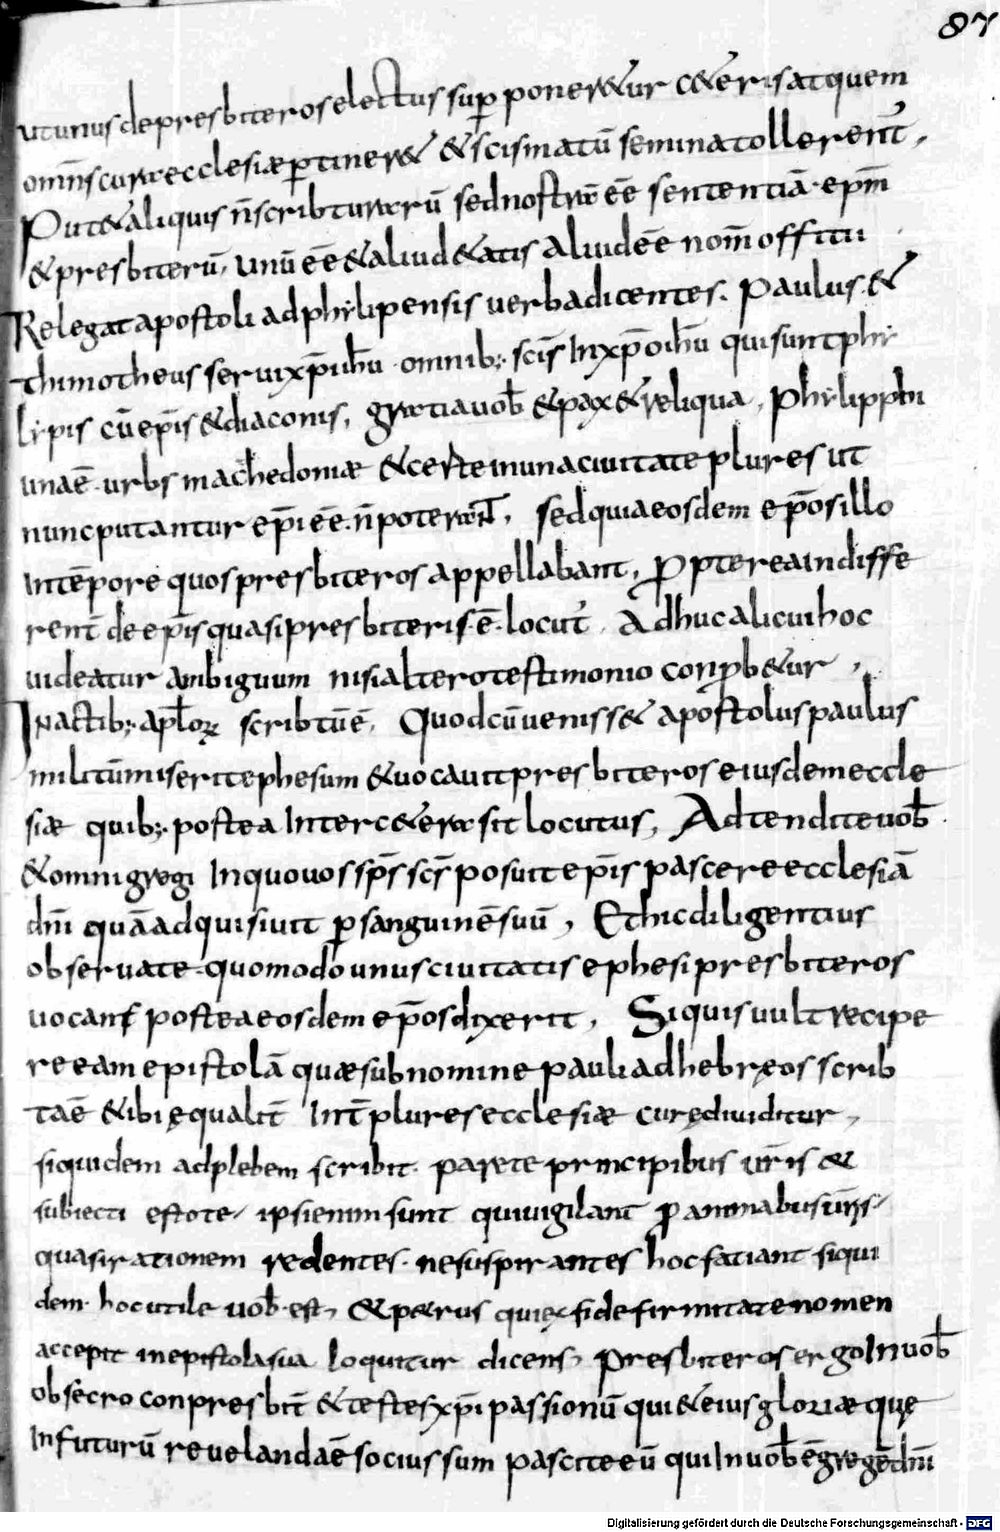 87
ut unus de presbiteros electus sup poner&ur c&eris at quem
omīs cura ecclesiæ ptiner& & scismatū semina tollerent,
Put&aliquis n̄ scribturarū sed nostrā eē sententiā · epm̄
& presbiterū, unū eē & aliud &atis aliud eē nom̄ offitii
Relegat apostoli ad phylipensis verba dicentes. Paulus &
thimotheus servi xp̄i ihū · omnib; sc̄is In xp̄o ihū qui sunt phy
lypis cū ep̄is & diaconis, gratia vob̄ & pax & reliqua, Phylippi
una ē · urbs machedoniæ & certe in una civitate plures ut
nunc putantur ep̄i eē · n̄ poterant, sed quia eosdem ep̄os illo
in tēpore quos presbiteros appellabant, Propterea indiffe
rent̄ de ep̄is quasi presbiteris · ē · locut̄ Adhuc alicui hoc
videatur ambiguum nisi altero testimonio conprob&ur,
In actib; apl̄oꝝ scribtū ē, Quod cū veniss& apostolus paulus
militū miserit ephesum & vocavit presbiteros eiusdem eccle
siæ quib; postea Inter c&era sit locutus, Adtendite vob̄
& omni gregi In quo vos sp̄s sc̄s posuit ep̄is pascere ecclesiā
dn̄i quā adquisivit p sanguinē suū, Et hic diligentius
observate · quomodo unus civitatis ephesi presbiteros
vocans postea eosdem ep̄os dixerit, Siquis vult recipe
re eam epistolā quæ sub nomine pauli ad hebręos scrib
ta ē & ibi ęqualit̄ Int̄ plures ecclesiæ curę dividitur,
siquidem ad plebem scribit · parete principibus vr̄is &
subiecti estote, ipsi enim sunt qui vigilant pro animabus vr̄is,
quasi rationem redentes · ne suspirantes hoc fatiant siqui
dem · hoc utile vob̄ · est, & p&rus qui ex fide firmitate nomen
accepit in epistola sua loquitur dicens, Presbiteros ergo In vob̄
obsecro conpresbit̄ & testes xp̄i passionū qui & eius gloriæ quę
In futurū revelanda ē socius sum pascite eū qui In vob̄ ē gregē dn̄i
Digitalisierung gefördert durch die Deutsche Forschungsgemeinschaft - DFG